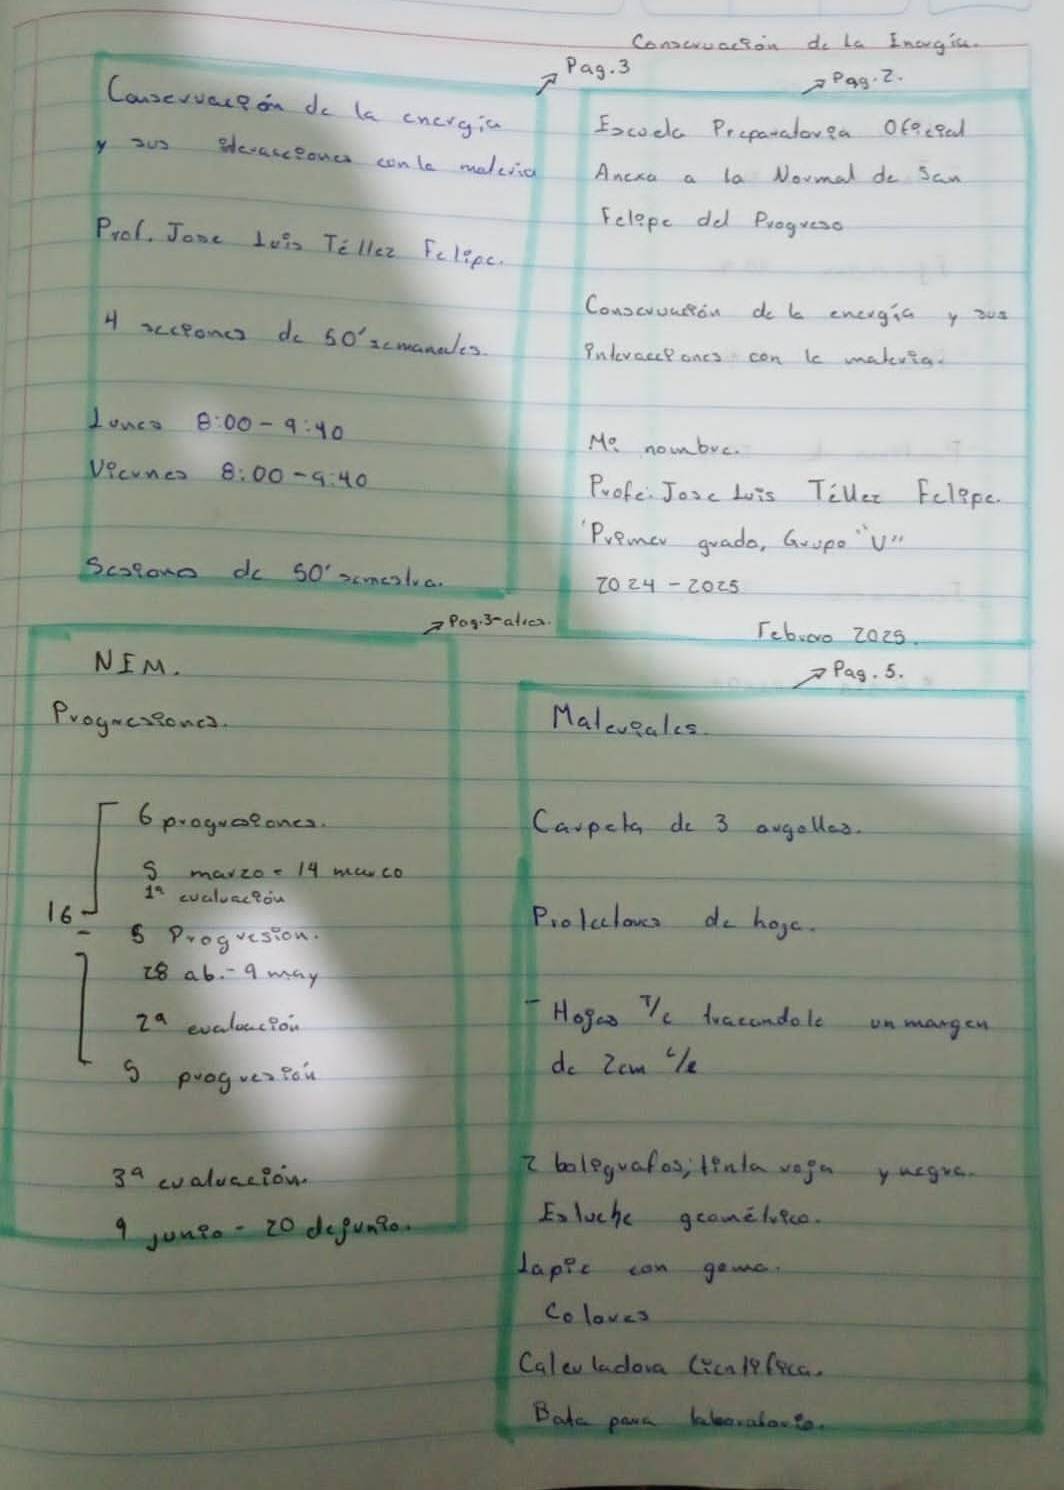 Conservación de la Energía.
Pag. 3
Conservación de la energía
y sus interacciones con la materia
Prof. Jose Luis Téllez Felipe.
4 secciones de 50' semanales.
Lunes 8:00 - 9:40
Viernes 8:00 - 9:40
Sesiones de 50' semestra.
Pag. 2.
Escuela Preparatoria Oficial
Anexa a la Normal de San
Felipe del Progreso
Conservación de la energía y sus
interacciones con la materia.
Mi nombre.
Profe. Jose Luis Téllez Felipe.
Primer grado, Grupo "V"
2024 - 2025
Febrero 2025.
Pag. 3-atras.
NEM.
Progresiones.
6 progresiones.
5 marzo - 14 marzo
1ª evaluación
16
5 Progresion.
28 ab. - 9 may
2ª evaluación
5 progresión
3ª evaluación.
9 junio - 20 de junio.
Pag. 5.
Materiales.
Carpeta de 3 argollas.
Protectores de hoja.
- Hojas T/c trazandole un margen
de 2cm c/e
2 bolígrafos, tinta roja y negra.
Estuche geométrico.
Lapiz con goma.
Colores
Calculadora Científica.
Bata para laboratorio.